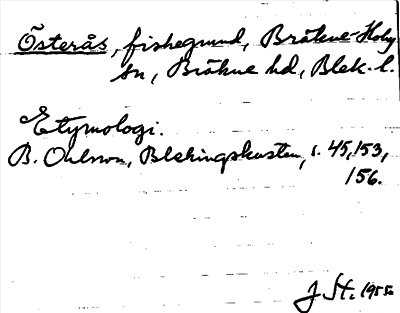 Österås, fiskegrund, Bräkne-Hoby
sn, Bräkne hd, Blek. l.
Etymologi.
B. Ohlsson, Blekingskusten, s. 45, 153,
156.
J St. 1955